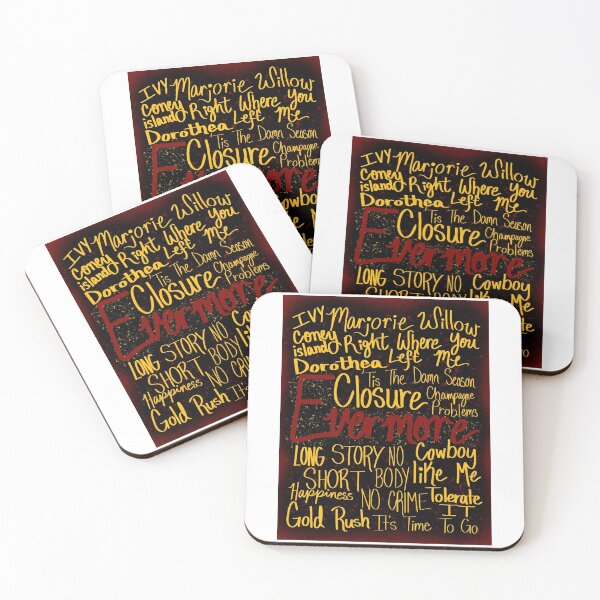 IVY Marjorie Willow
Coney Right Where You
island Left Me
Dorothea 'Tis The Damn Season
Closure Champagne
Problems
IVY Marjorie Willow
Coney Right Where You
island Left Me
Dorothea 'Tis The Damn Season
Closure Champagne
Problems
Evermore
LONG STORY NO Cowboy
like Me
IVY Marjorie Willow
Coney Right Where You
island Left Me
Dorothea 'Tis The Damn Season
Closure Champagne
Problems
Evermore
LONG STORY NO
SHORT BODY
Happiness NO
Gold Rush It's
IVY Marjorie Willow
Coney Right Where You
island Left Me
Dorothea 'Tis The Damn Season
Closure Champagne
Problems
Evermore
LONG STORY NO Cowboy
SHORT BODY like Me
Happiness NO CRIME Tolerate
IT
Gold Rush It's Time To Go